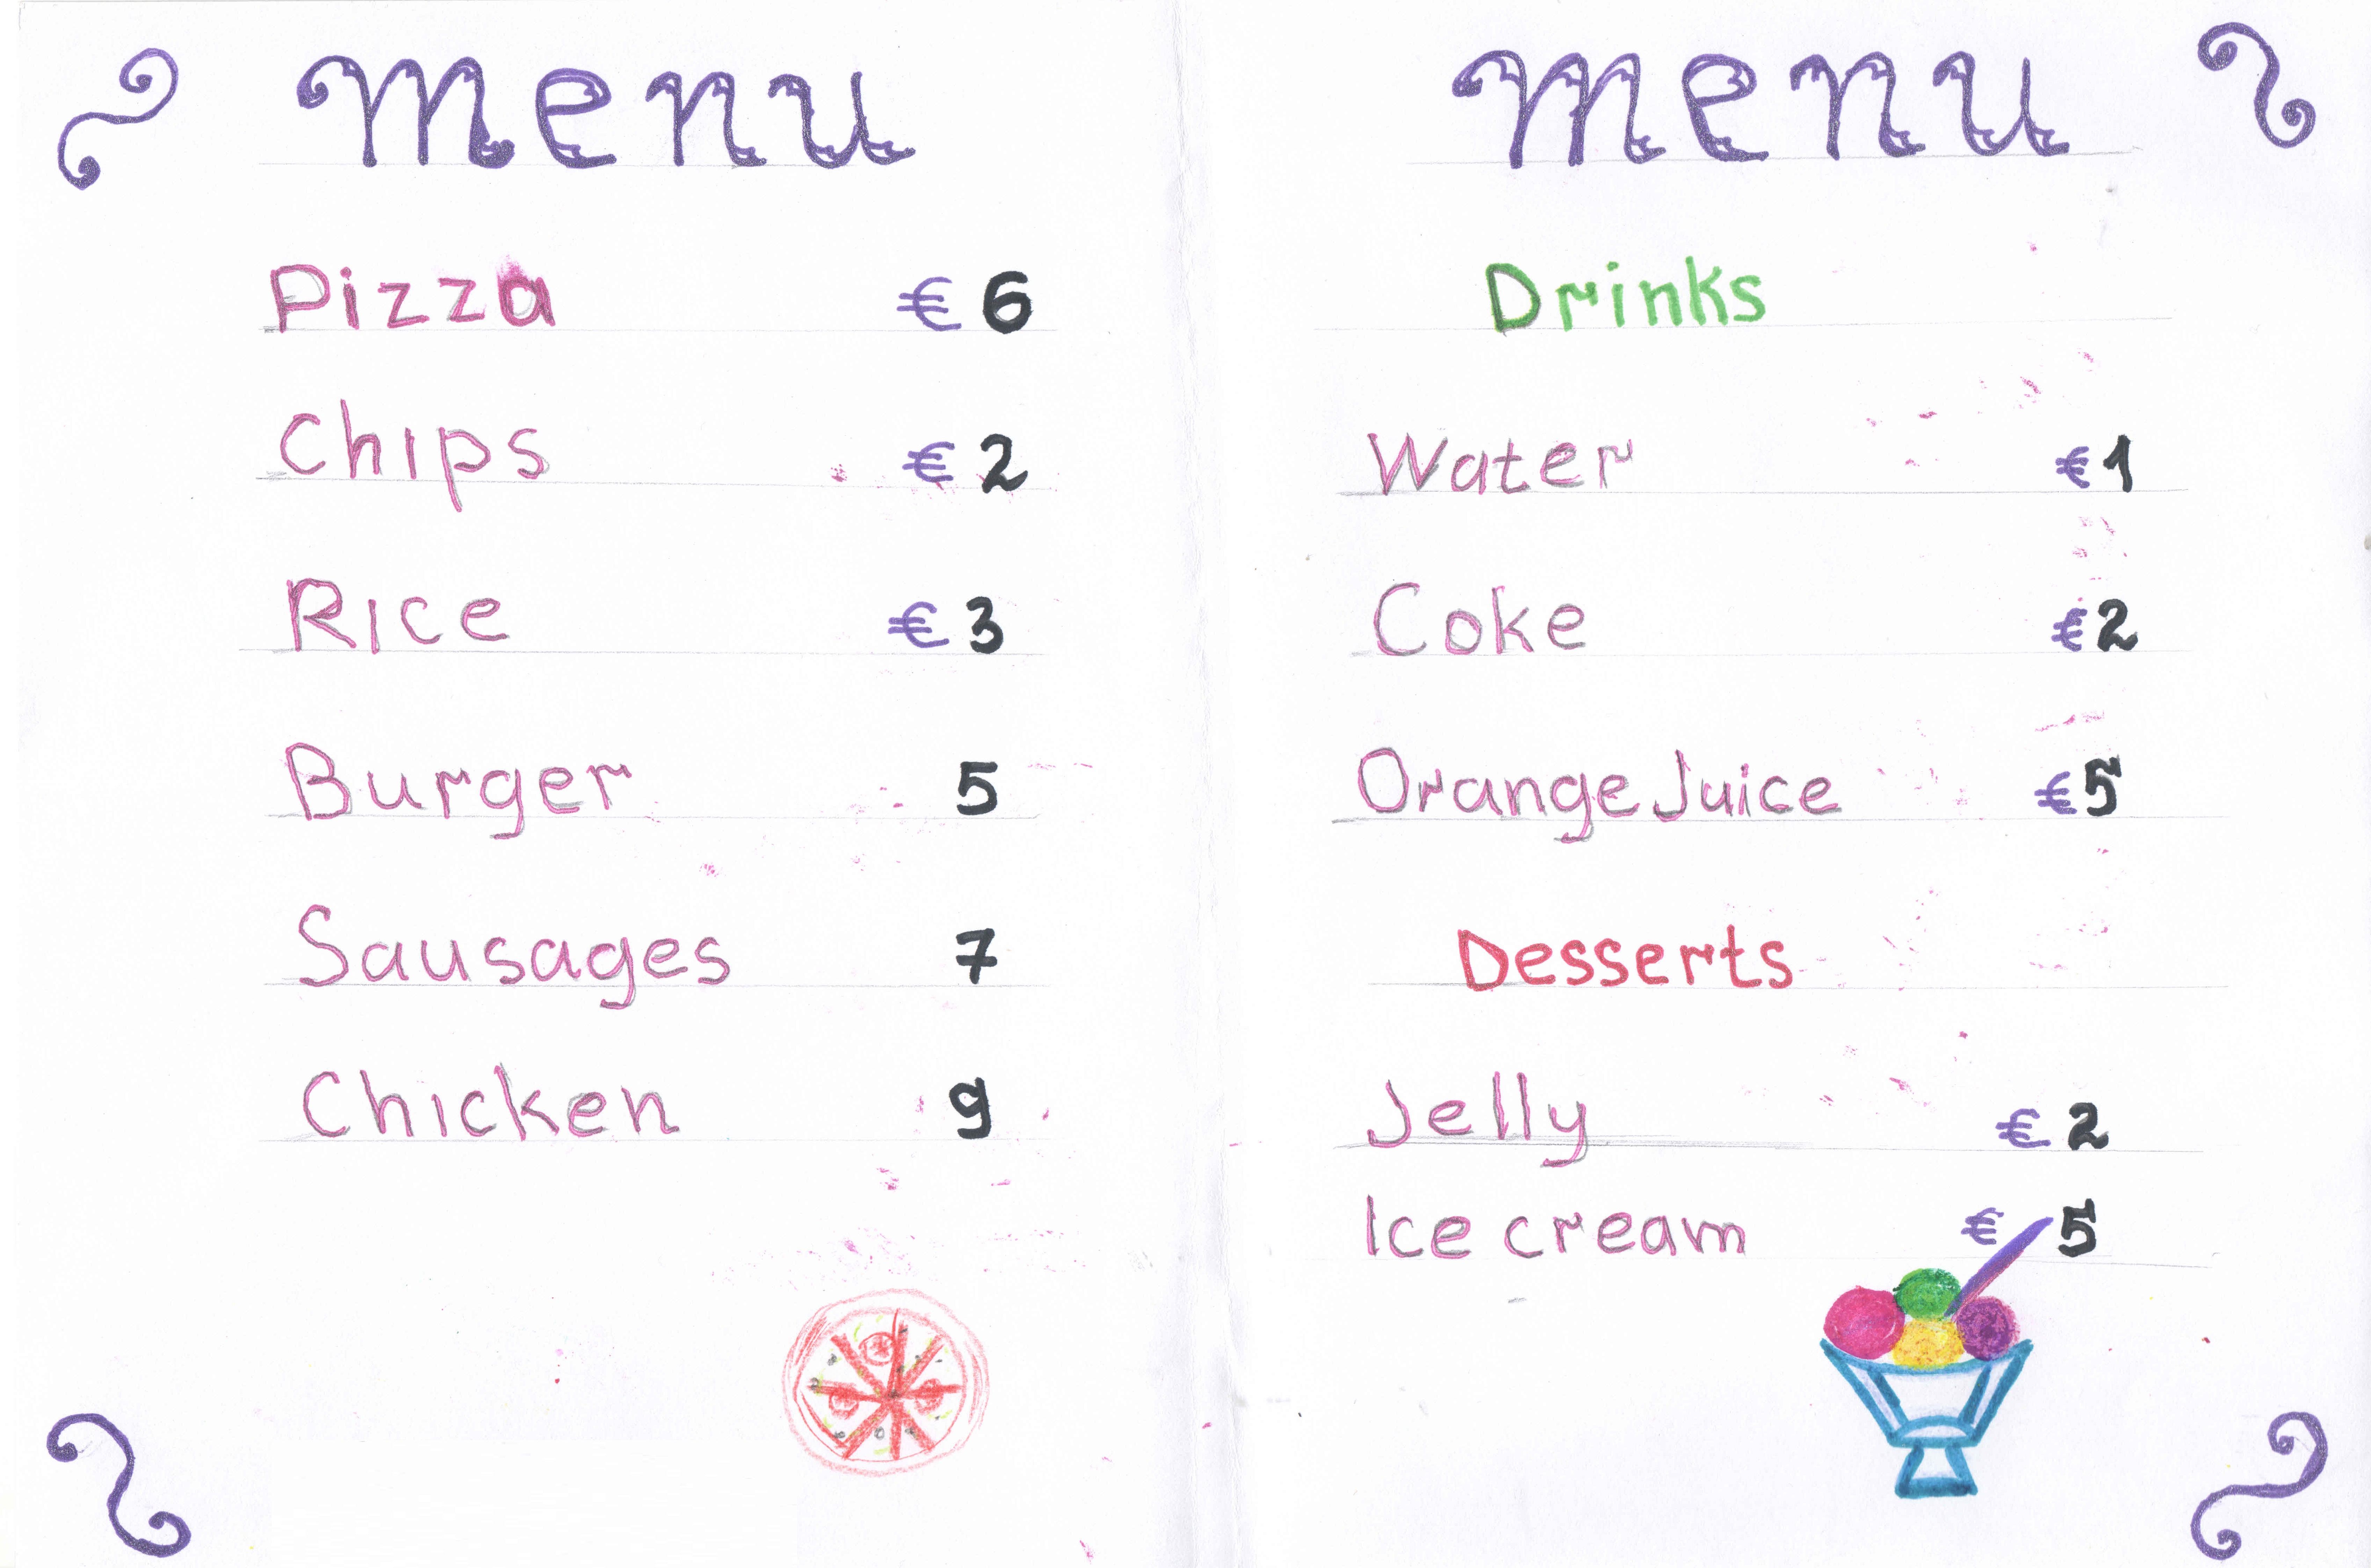 Menu
Pizza € 6
Chips € 2
Rice € 3
Burger 5
Sausages 7
Chicken 9
Menu
Drinks
Water € 1
Coke € 2
Orange Juice € 5
Desserts
Jelly € 2
Ice cream € 5